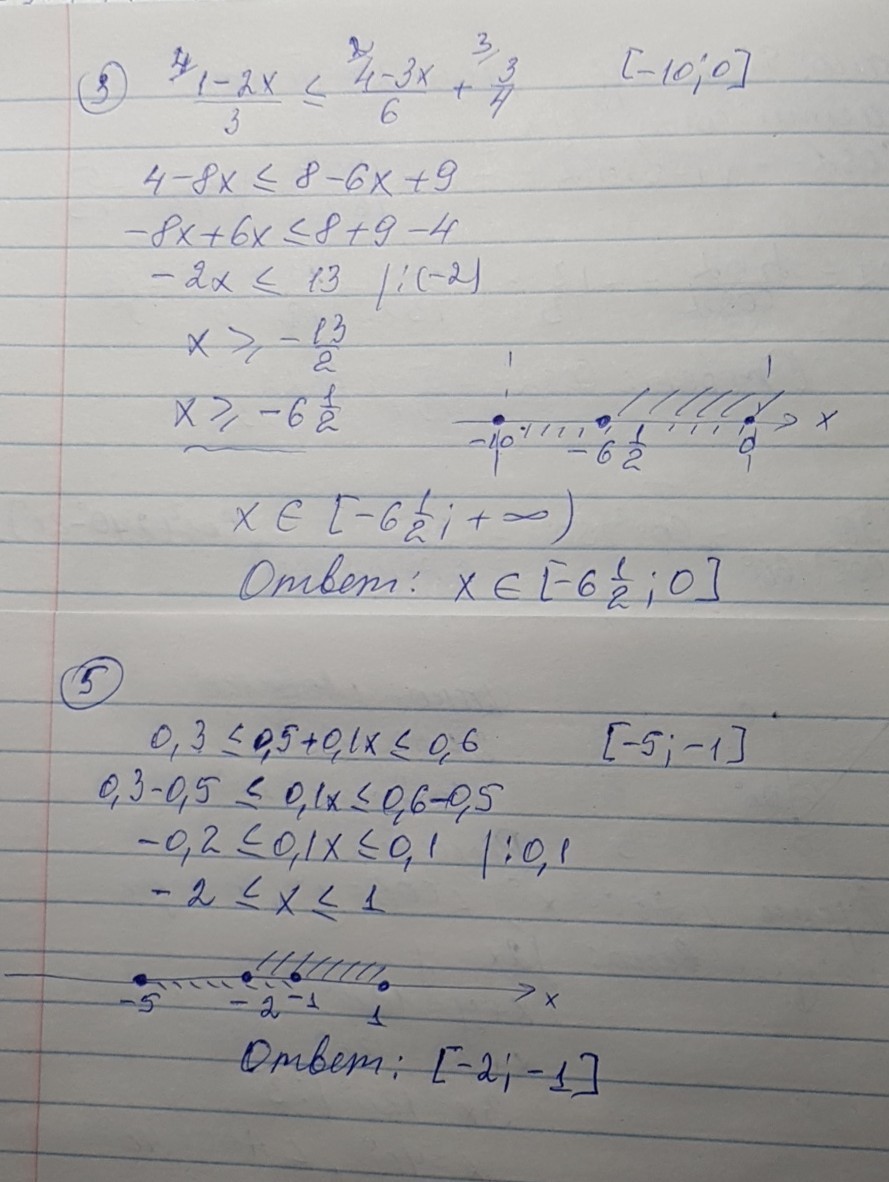 ③ ⁴⁄ 1-2x/3 ≤ ²⁄ 4-3x/6 + ³⁄ 3/4 [-10; 0]
4-8x ≤ 8-6x+9
-8x+6x ≤ 8+9-4
-2x ≤ 13 |:(-2)
x ≥ -13/2
x ≥ -6 1/2
-10 -6 1/2 0 x
x ∈ [-6 1/2; +∞)
Ответ: x ∈ [-6 1/2; 0]
⑤
0,3 ≤ 0,5+0,1x ≤ 0,6 [-5; -1]
0,3-0,5 ≤ 0,1x ≤ 0,6-0,5
-0,2 ≤ 0,1x ≤ 0,1 |:0,1
-2 ≤ x ≤ 1
-5 -2 -1 1 x
Ответ: [-2; -1]